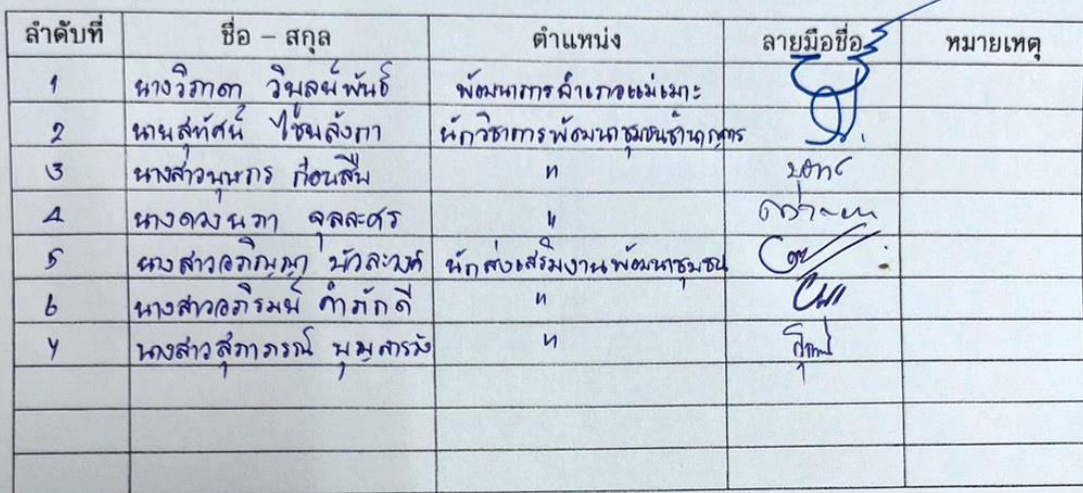 ลำดับที่ ชื่อ – สกุล ตำแหน่ง ลายมือชื่อ หมายเหตุ
1 นางวิภาดา วิมลน์พันธ์ พัฒนาการอำเภอแม่เมาะ
2 นายสุทัศน์ ไชยลังกา นักวิชาการพัฒนาชุมชนชำนาญการ
3 นางสาวนุษกร ก้อนสืบ "
4 นางดวงนภา จุลละศร "
5 นางสาวอภิญญา บัวละวงค์ นักส่งเสริมงานพัฒนาชุมชน
6 นางสาวอภิรมย์ คำภักดี "
7 นางสาวสุภาภรณ์ "